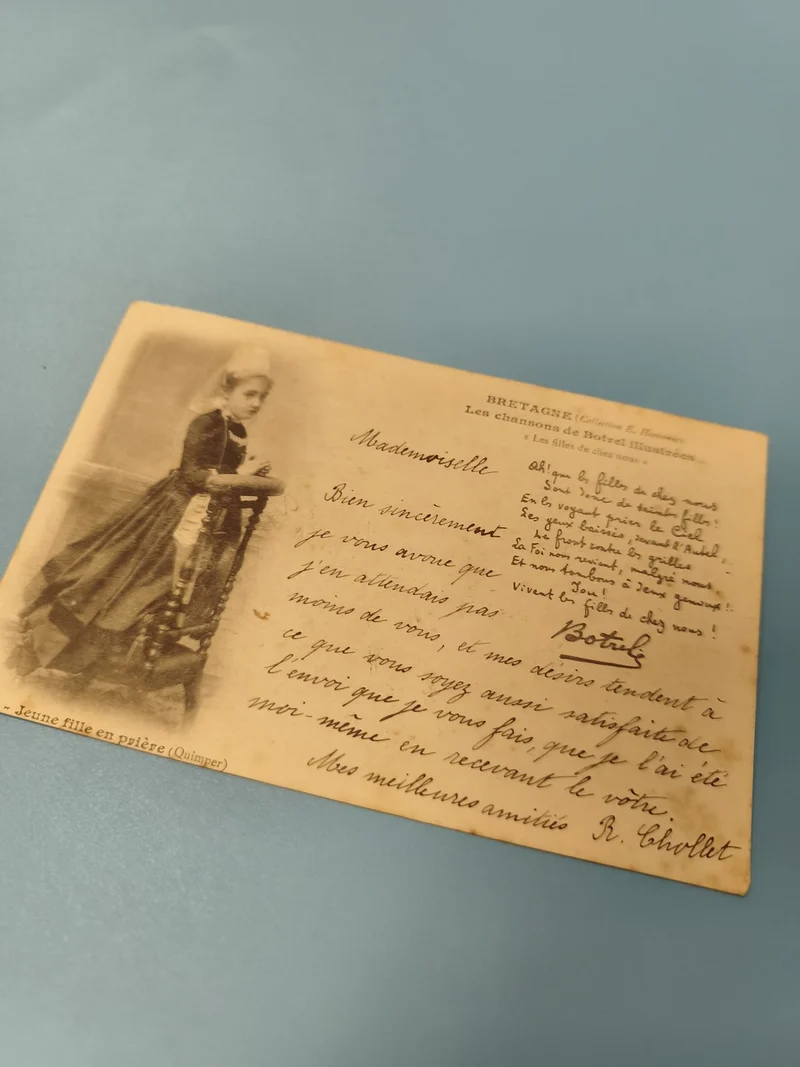 BRETAGNE (Collection E. Hamonic)
Les chansons de Botrel illustrées
« Les filles de chez nous »
Oh! que les filles de chez nous
Sont donc de saintes filles!
En les voyant prier le Ciel,
Les yeux baissés, devant l'Autel,
Le front contre les grilles
La Foi nous revient, malgré nous,
Et nous tombons à deux genoux!
Iou!
Vivent les filles de chez nous!
Botrel
Mademoiselle
Bien sincèrement
je vous avoue que
j'en attendais pas
moins de vous, et mes désirs tendent à
ce que vous soyez aussi satisfaite de
l'envoi que je vous fais, que je l'ai été
moi-même en recevant le vôtre.
Mes meilleures amitiés R. Chollet
- Jeune fille en prière (Quimper)